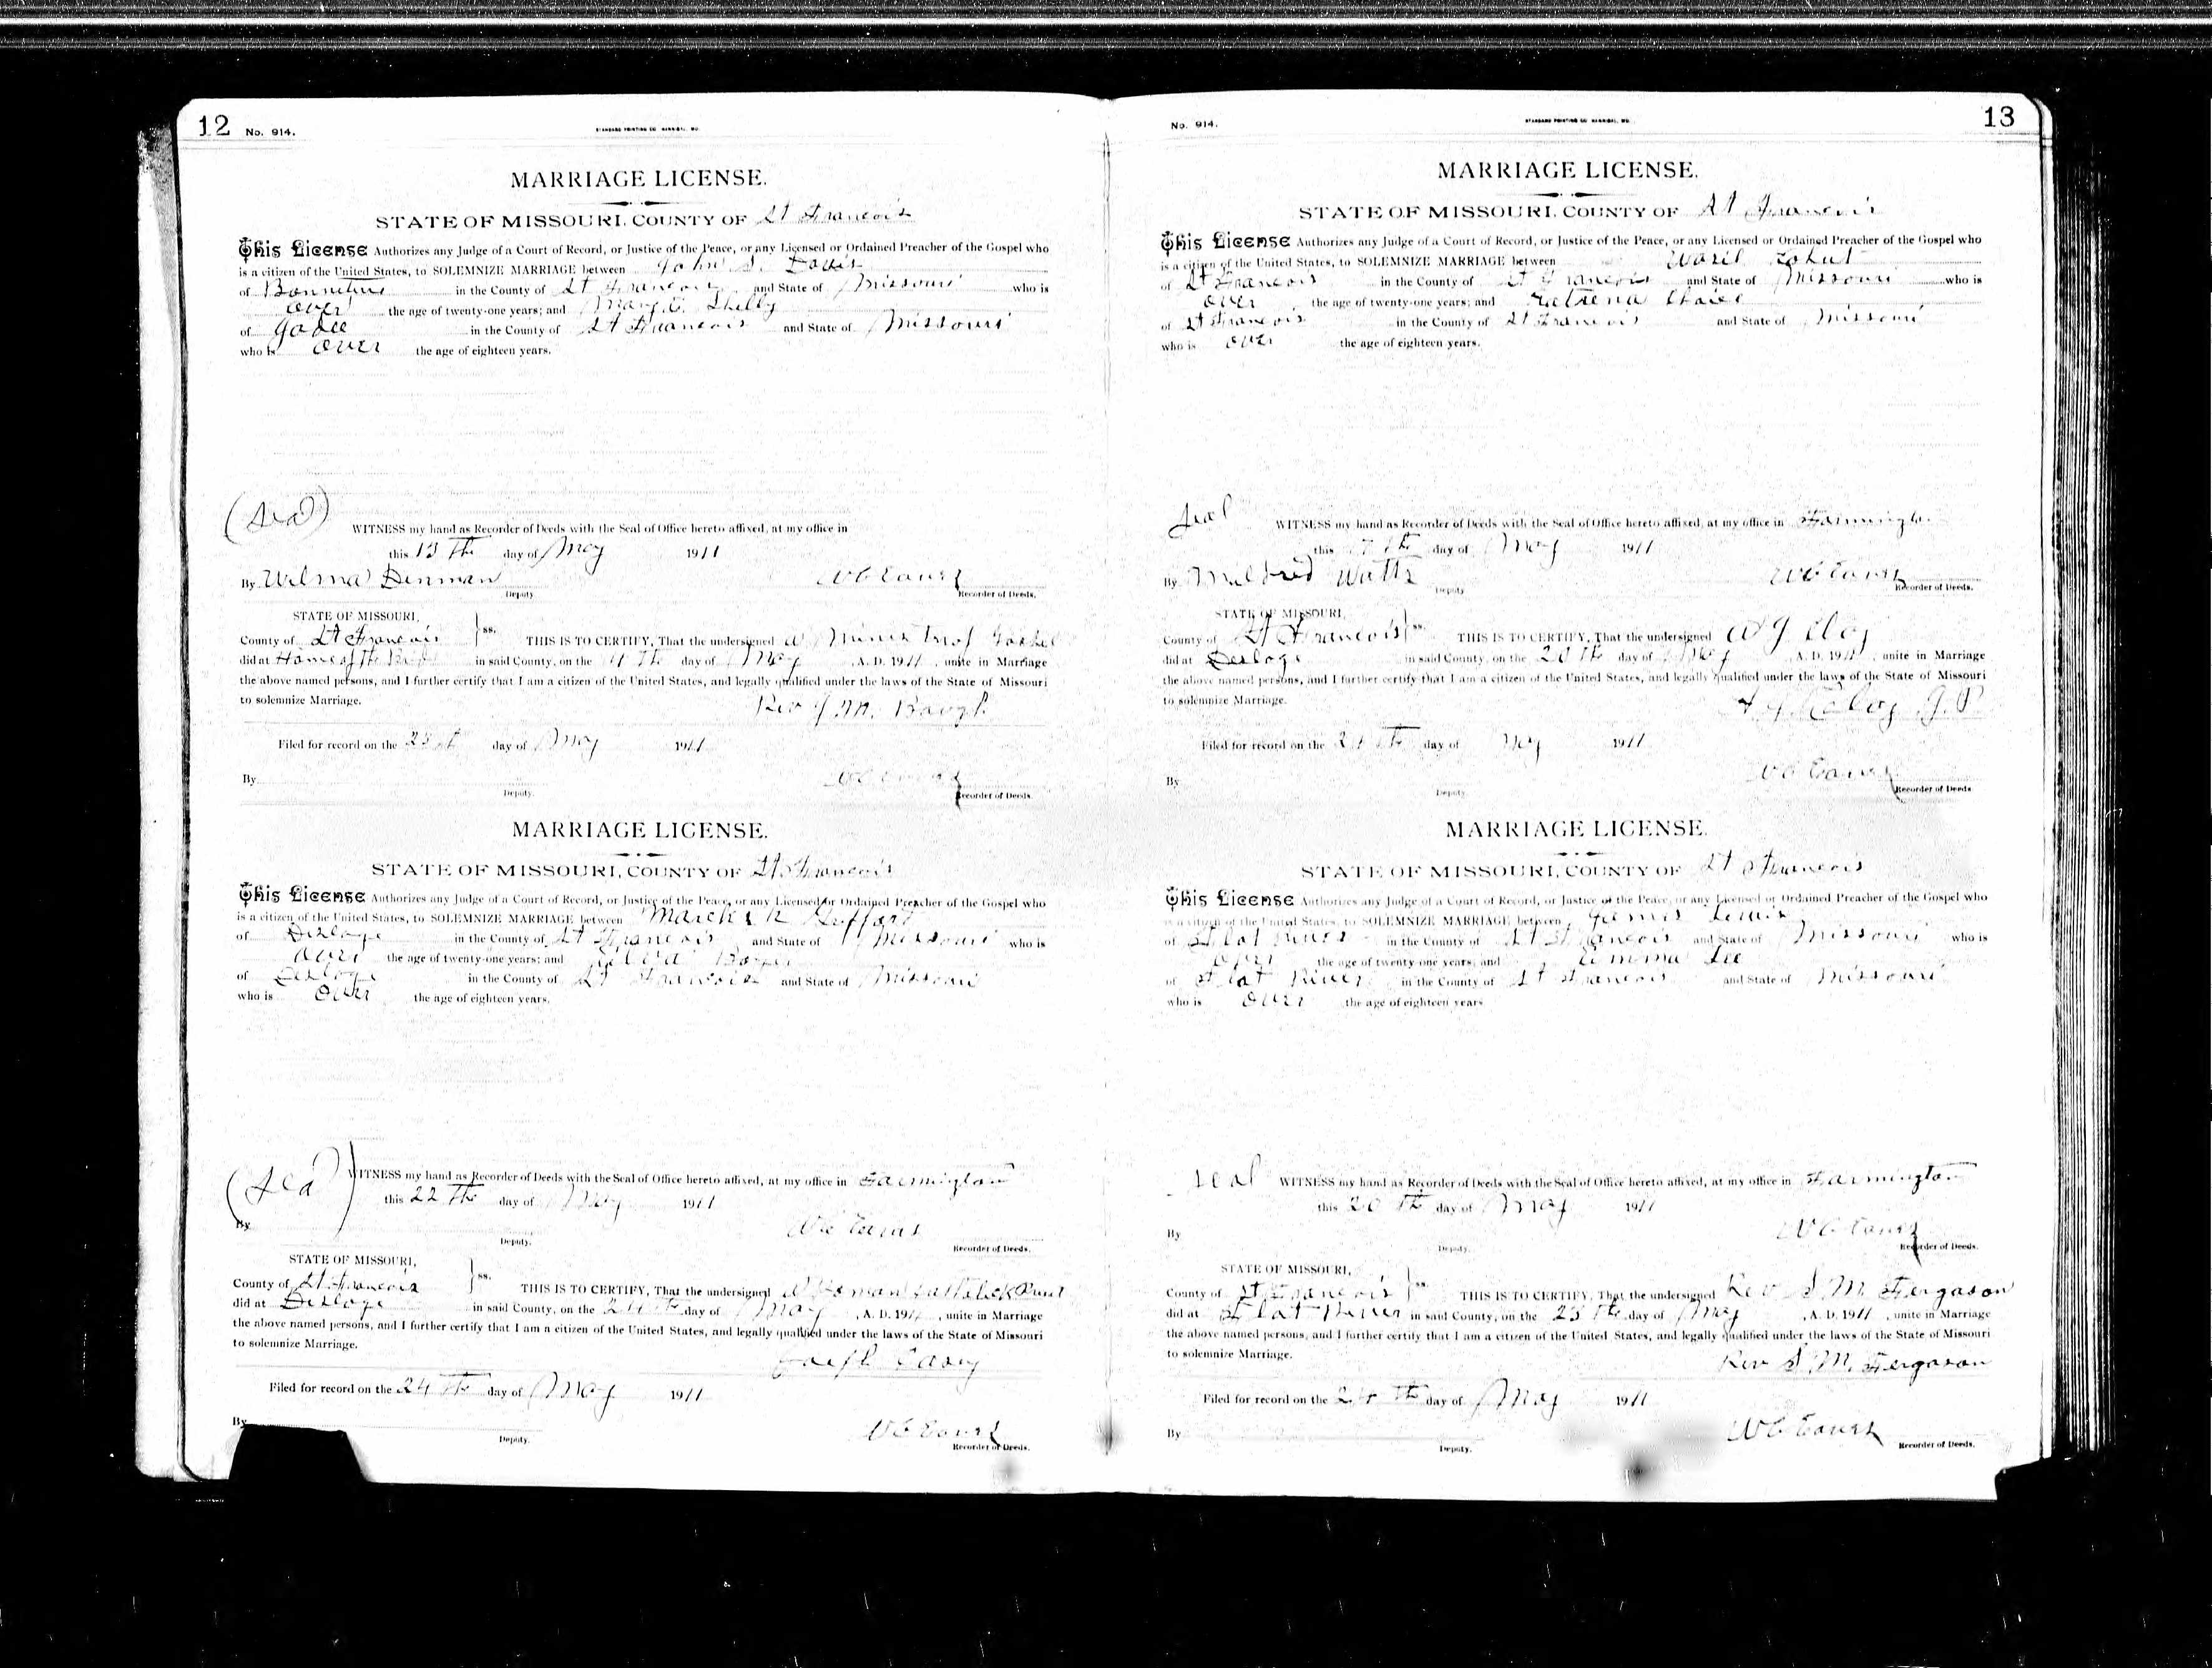 12 No. 914. STANDARD PRINTING CO. HANNIBAL, MO.
MARRIAGE LICENSE.
STATE OF MISSOURI, COUNTY OF St Francois
This License Authorizes any Judge of a Court of Record, or Justice of the Peace, or any Licensed or Ordained Preacher of the Gospel who
is a citizen of the United States, to SOLEMNIZE MARRIAGE between John S. Davis
of in the County of St Francois and State of Missouri who is
over the age of twenty-one years; and Mary E. Shelly
of in the County of St Francois and State of Missouri
who is over the age of eighteen years.
(Seal)
WITNESS my hand as Recorder of Deeds with the Seal of Office hereto affixed, at my office in
this 13th day of May 1911
By Wilma Denman
Deputy Recorder of Deeds.
STATE OF MISSOURI,
County of St Francois } ss. THIS IS TO CERTIFY, That the undersigned a
did at Home of the in said County, on the day of May A. D. 1911, unite in Marriage
the above named persons, and I further certify that I am a citizen of the United States, and legally qualified under the laws of the State of Missouri
to solemnize Marriage.
Rev
Filed for record on the day of May 1911
By
Deputy. Recorder of Deeds.
MARRIAGE LICENSE.
STATE OF MISSOURI, COUNTY OF St Francois
This License Authorizes any Judge of a Court of Record, or Justice of the Peace, or any Licensed or Ordained Preacher of the Gospel who
is a citizen of the United States, to SOLEMNIZE MARRIAGE between
of Desloge in the County of St Francois and State of Missouri who is
over the age of twenty-one years; and
of Desloge in the County of St Francois and State of Missouri
who is over the age of eighteen years.
(Seal)
WITNESS my hand as Recorder of Deeds with the Seal of Office hereto affixed, at my office in Farmington
this 22 th day of May 1911
By
Deputy. Recorder of Deeds.
STATE OF MISSOURI,
County of St Francois } ss. THIS IS TO CERTIFY, That the undersigned a
did at Desloge in said County, on the day of May, A. D. 1911, unite in Marriage
the above named persons, and I further certify that I am a citizen of the United States, and legally qualified under the laws of the State of Missouri
to solemnize Marriage.
Filed for record on the 24 th day of May 1911
By
Deputy. Recorder of Deeds.
No. 914. STANDARD PRINTING CO. HANNIBAL, MO. 13
MARRIAGE LICENSE.
STATE OF MISSOURI, COUNTY OF St Francois
This License Authorizes any Judge of a Court of Record, or Justice of the Peace, or any Licensed or Ordained Preacher of the Gospel who
is a citizen of the United States, to SOLEMNIZE MARRIAGE between
of St Francois in the County of St Francois and State of Missouri who is
over the age of twenty-one years; and
of St Francois in the County of St Francois and State of Missouri
who is over the age of eighteen years.
Seal
WITNESS my hand as Recorder of Deeds with the Seal of Office hereto affixed, at my office in
this day of May 1911
By Mildred Watts
Deputy Recorder of Deeds.
STATE OF MISSOURI,
County of St Francois } ss. THIS IS TO CERTIFY, That the undersigned
did at Desloge in said County, on the 20 th day of May, A. D. 1911, unite in Marriage
the above named persons, and I further certify that I am a citizen of the United States, and legally qualified under the laws of the State of Missouri
to solemnize Marriage.
J. P.
Filed for record on the day of May 1911
By
Deputy. Recorder of Deeds
MARRIAGE LICENSE.
STATE OF MISSOURI, COUNTY OF St Francois
This License Authorizes any Judge of a Court of Record, or Justice of the Peace, or any Licensed or Ordained Preacher of the Gospel who
is a citizen of the United States, to SOLEMNIZE MARRIAGE between Lewis
of Flat River in the County of St Francois and State of Missouri who is
over the age of twenty-one years; and Emma Lee
of Flat River in the County of St Francois and State of Missouri
who is over the age of eighteen years
Seal
WITNESS my hand as Recorder of Deeds with the Seal of Office hereto affixed, at my office in Farmington
this 20 th day of May 1911
By
Deputy. Recorder of Deeds.
STATE OF MISSOURI,
County of St Francois } ss. THIS IS TO CERTIFY, That the undersigned Rev S. M. Fergason
did at Flat River in said County, on the 23 th day of May, A. D. 1911, unite in Marriage
the above named persons, and I further certify that I am a citizen of the United States, and legally qualified under the laws of the State of Missouri
to solemnize Marriage.
Rev S. M. Fergason
Filed for record on the 24 th day of May 1911
By
Deputy. Recorder of Deeds.